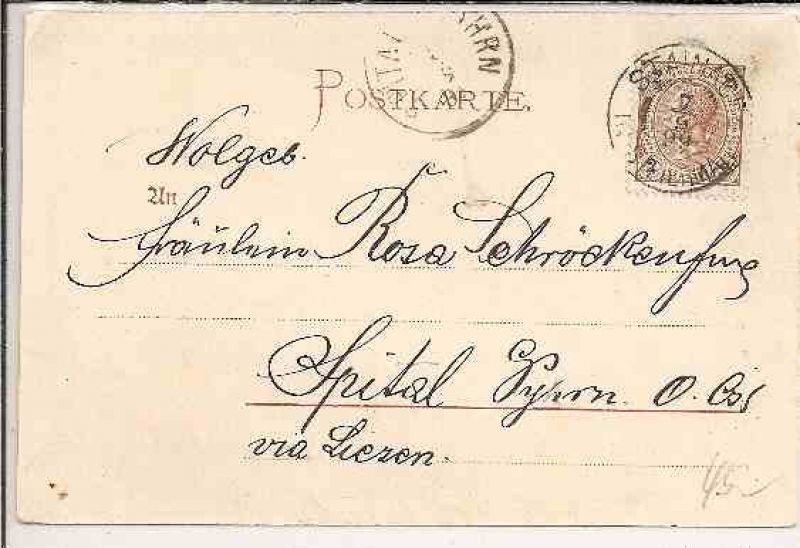 POSTKARTE.
Wolgeb.
An
Fräulein Rosa Schröckenfux
Spital Pyhrn. O. Öst
via Liezen.
45.-